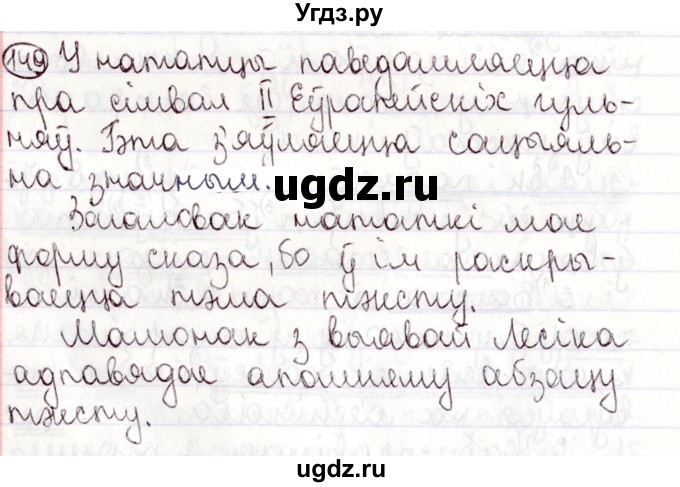 Угдз.ру
149 У нататцы паведамляецца
пра сімвал II Еўрапейскіх гуль-
няў. Гэта з'яўляецца сацыяль-
на значным.
ugdz.ru
Загаловак нататкі мае
форму сказа, бо ў ім раскры-
ваецца тэма тэксту.
Малюнак з выявай Лесіка
адпавядае апошняму абзацу
тэксту.
ugdz.ru